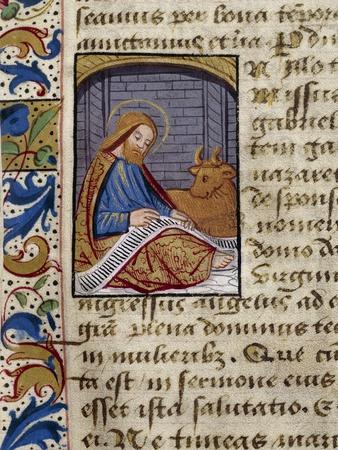 seamus per bona tempor
mictamus etc͂a. P dn
N illo t
issus
gabriel
tem ga
nazaret
despons
nomen
domo da
virgin
ingressus angelus ad e
gr͂a plena dominus te
in mulieribz. Que cu
ta est in sermone eius
esset ista salutatio. E
ei. Ne timeas mari